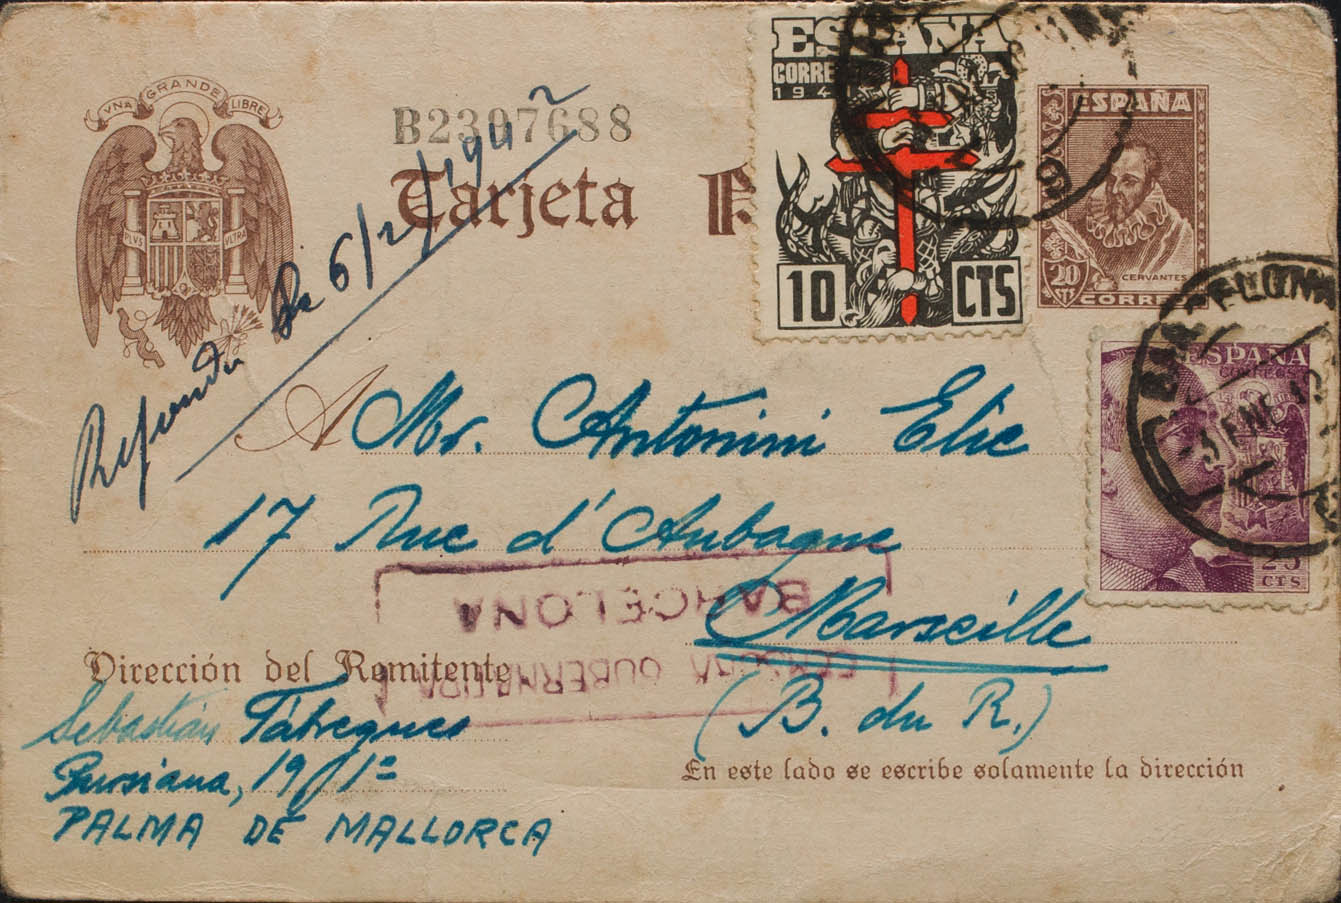 VNA GRANDE LIBRE
B2307688
Tarjeta
PLVS VLTRA
ESPAÑA
CORRE
194
10 CTS
ESPAÑA
20
CERVANTES
CORRE
BARCELONA
ESPAÑA
CORREOS
3 ENE
25
CTS
6/2/1942
A Mr. Antonini Elie
17 Rue d'Aubagne
Marseille
(B. du R.)
BARCELONA
CENSURA GUBERNATIVA
Dirección del Remitente
Sebastián Fábregues
19, 1º
PALMA DE MALLORCA
En este lado se escribe solamente la dirección